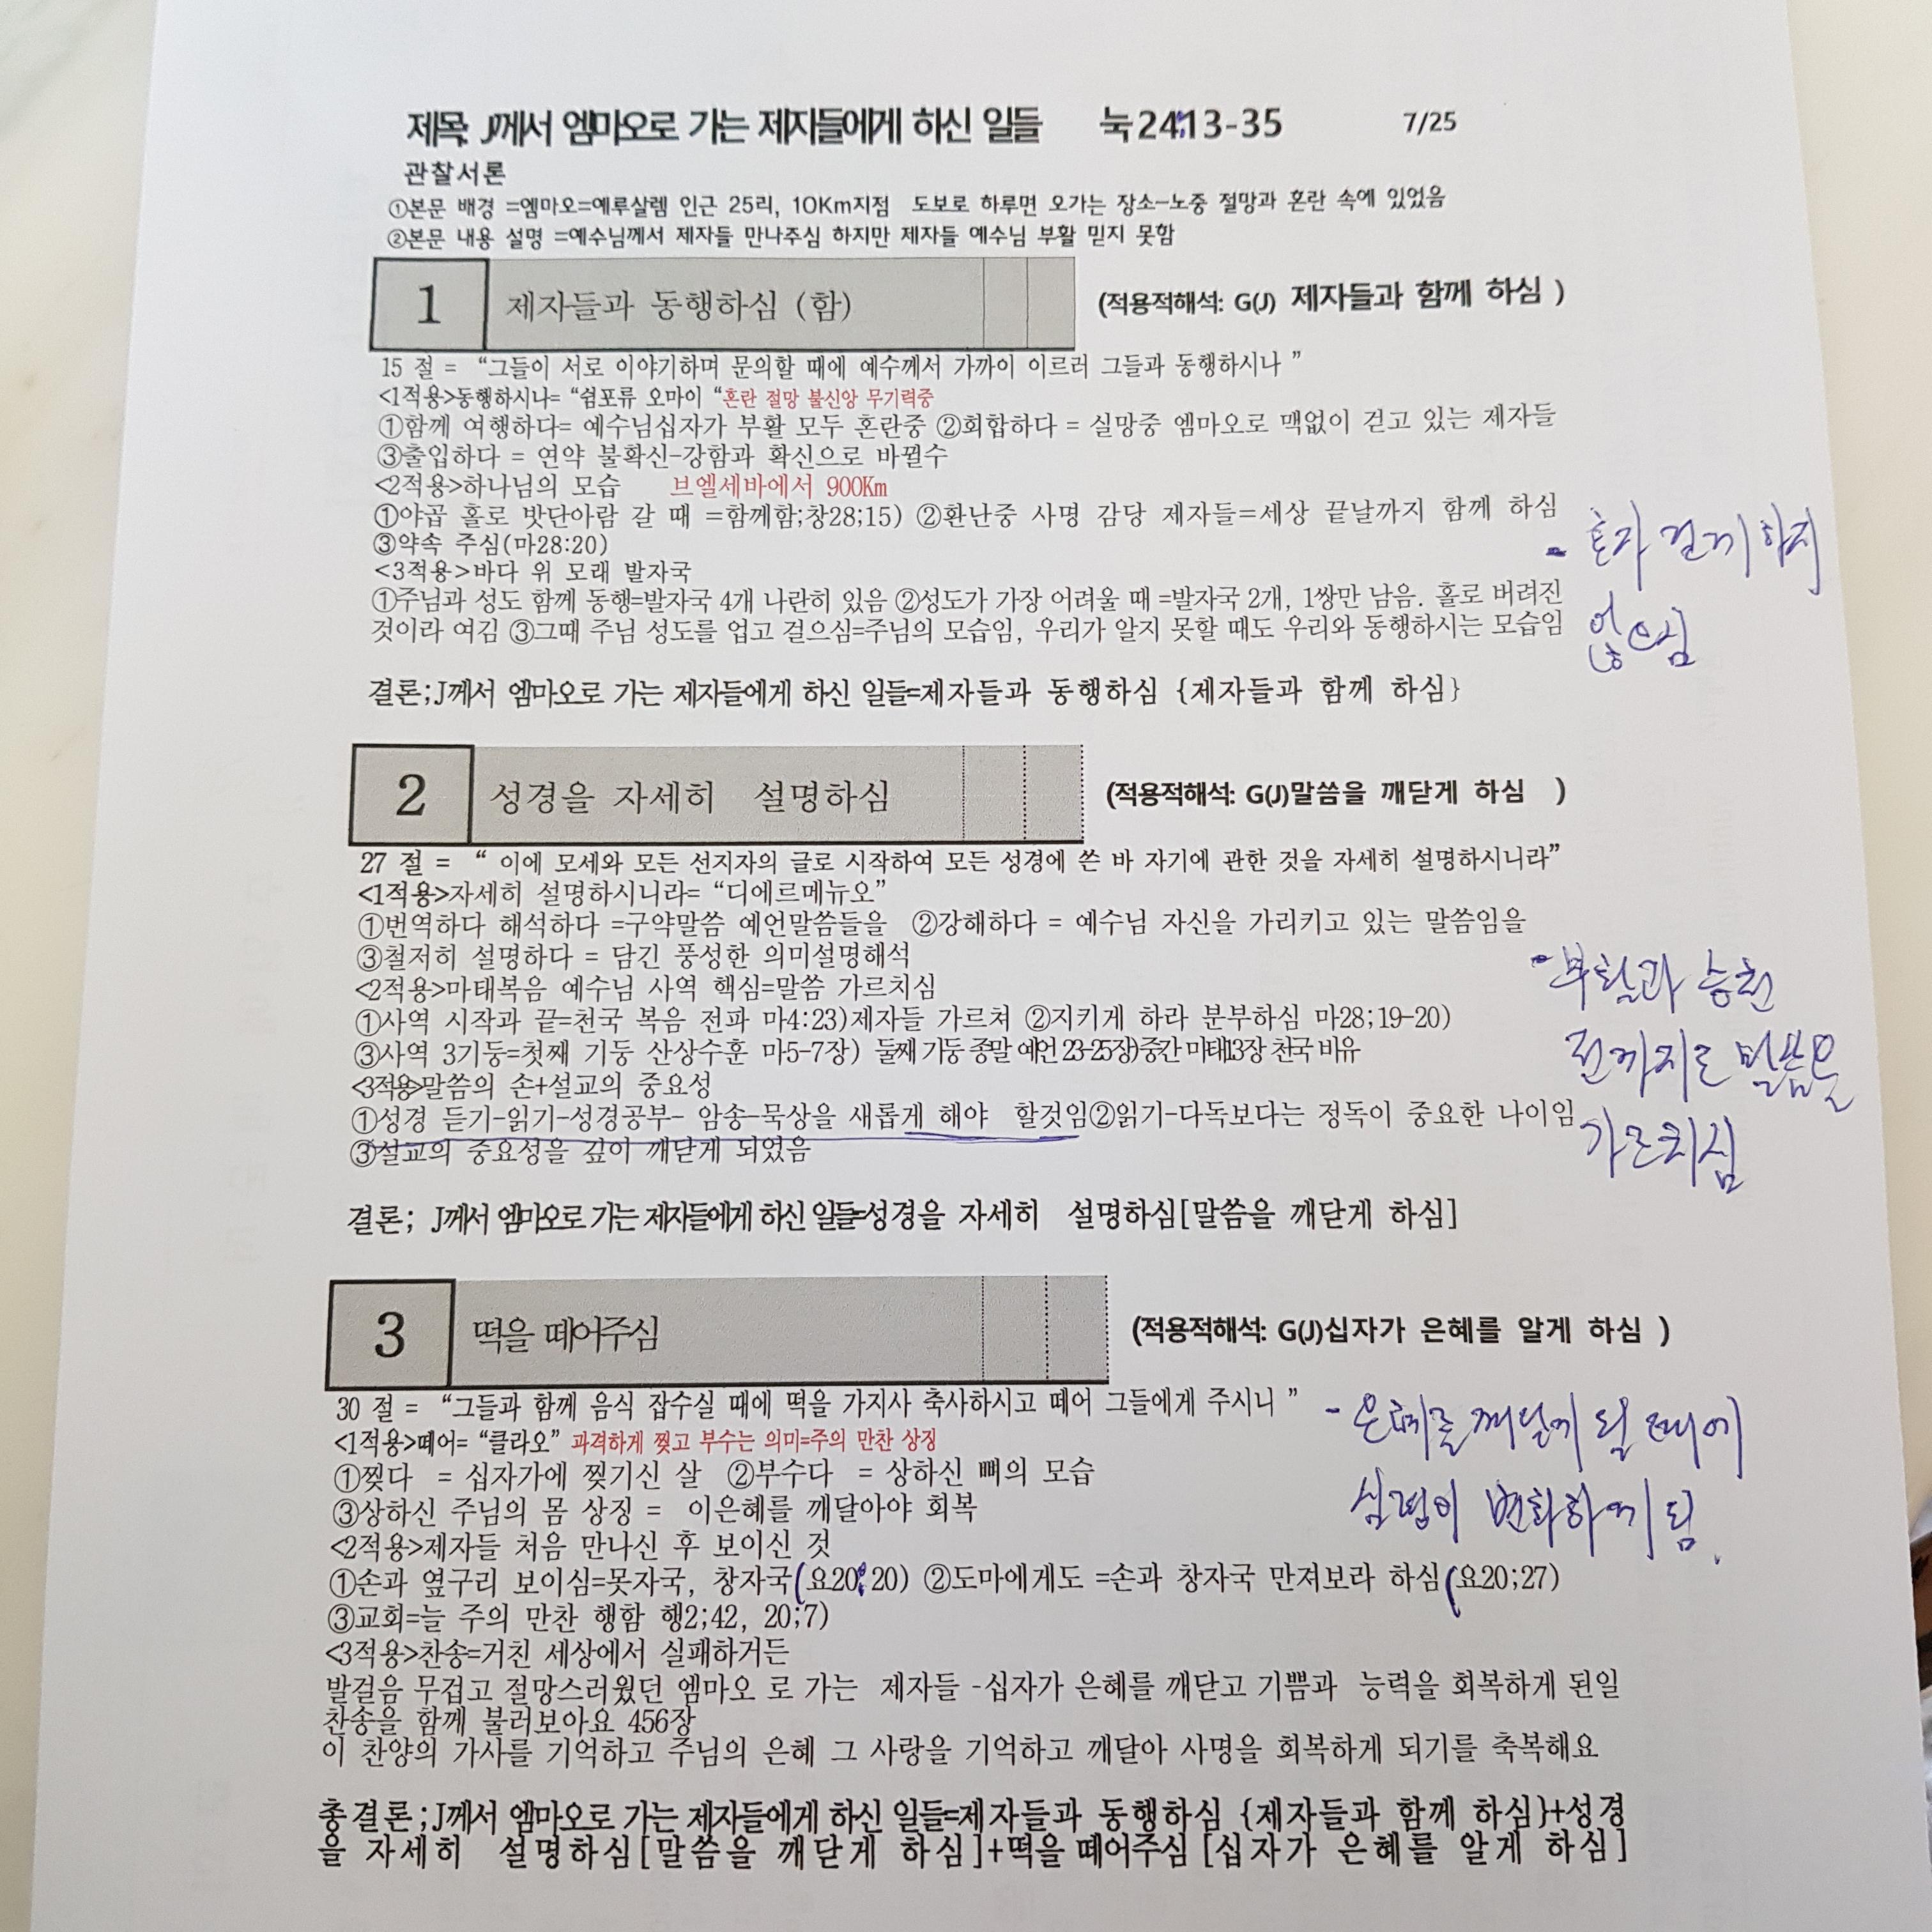 제목: J께서 엠마오로 가는 제자들에게 하신 일들 눅24;13-35 7/25
관찰서론
①본문 배경 =엠마오=예루살렘 인근 25리, 10Km지점 도보로 하루면 오가는 장소-노중 절망과 혼란 속에 있었음
②본문 내용 설명 =예수님께서 제자들 만나주심 하지만 제자들 예수님 부활 믿지 못함
1 제자들과 동행하심 (함) (적용적해석: G(J) 제자들과 함께 하심 )
15 절 = “그들이 서로 이야기하며 문의할 때에 예수께서 가까이 이르러 그들과 동행하시나 ”
<1적용>동행하시나= “쉼포류 오마이 “혼란 절망 불신앙 무기력중
①함께 여행하다= 예수님십자가 부활 모두 혼란중 ②회합하다 = 실망중 엠마오로 맥없이 걷고 있는 제자들
③출입하다 = 연약 불확신-강함과 확신으로 바뀔수
<2적용>하나님의 모습 브엘세바에서 900Km
①야곱 홀로 밧단아람 갈 때 =함께함;창28;15) ②환난중 사명 감당 제자들=세상 끝날까지 함께 하심
③약속 주심(마28:20)
- 혼자 걷게 하지
<3적용>바다 위 모래 발자국
①주님과 성도 함께 동행=발자국 4개 나란히 있음 ②성도가 가장 어려울 때 =발자국 2개, 1쌍만 남음. 홀로 버려진
것이라 여김 ③그때 주님 성도를 업고 걸으심=주님의 모습임, 우리가 알지 못할 때도 우리와 동행하시는 모습임
않으심
결론;J께서 엠마오로 가는 제자들에게 하신 일들=제자들과 동행하심 {제자들과 함께 하심}
2 성경을 자세히 설명하심 (적용적해석: G(J)말씀을 깨닫게 하심 )
27 절 = “ 이에 모세와 모든 선지자의 글로 시작하여 모든 성경에 쓴 바 자기에 관한 것을 자세히 설명하시니라”
<1적용>자세히 설명하시니라= “디에르메뉴오”
①번역하다 해석하다 =구약말씀 예언말씀들을 ②강해하다 = 예수님 자신을 가리키고 있는 말씀임을
③철저히 설명하다 = 담긴 풍성한 의미설명해석
<2적용>마태복음 예수님 사역 핵심=말씀 가르치심
- 부활과 승천
①사역 시작과 끝=천국 복음 전파 마4:23)제자들 가르쳐 ②지키게 하라 분부하심 마28;19-20)
③사역 3기둥=첫째 기둥 산상수훈 마5-7장) 둘째 기둥 종말 예언 23-25장)중간 마태13장 천국 비유
전까지도 말씀을
<3적용>말씀의 손+설교의 중요성
①성경 듣기-읽기-성경공부- 암송-묵상을 새롭게 해야 할것임②읽기-다독보다는 정독이 중요한 나이임
③설교의 중요성을 깊이 깨닫게 되었음
가르치심
결론; J께서 엠마오로 가는 제자들에게 하신 일들=성경을 자세히 설명하심[말씀을 깨닫게 하심]
3 떡을 떼어주심 (적용적해석: G(J)십자가 은혜를 알게 하심 )
30 절 = “그들과 함께 음식 잡수실 때에 떡을 가지사 축사하시고 떼어 그들에게 주시니 ”
- 은혜를 깨닫게 될 때에
<1적용>떼어= “클라오” 과격하게 찢고 부수는 의미=주의 만찬 상징
①찢다 = 십자가에 찢기신 살 ②부수다 = 상하신 뼈의 모습
③상하신 주님의 몸 상징 = 이은혜를 깨달아야 회복
심령이 변화하게 됨.
<2적용>제자들 처음 만나신 후 보이신 것
①손과 옆구리 보이심=못자국, 창자국(요20:20) ②도마에게도 =손과 창자국 만져보라 하심(요20;27)
③교회=늘 주의 만찬 행함 행2;42, 20;7)
<3적용>찬송=거친 세상에서 실패하거든
발걸음 무겁고 절망스러웠던 엠마오 로 가는 제자들 -십자가 은혜를 깨닫고 기쁨과 능력을 회복하게 된일
찬송을 함께 불러보아요 456장
이 찬양의 가사를 기억하고 주님의 은혜 그 사랑을 기억하고 깨달아 사명을 회복하게 되기를 축복해요
총결론;J께서 엠마오로 가는 제자들에게 하신 일들=제자들과 동행하심 {제자들과 함께 하심}+성경
을 자세히 설명하심[말씀을 깨닫게 하심]+떡을 떼어주심 [십자가 은혜를 알게 하심]